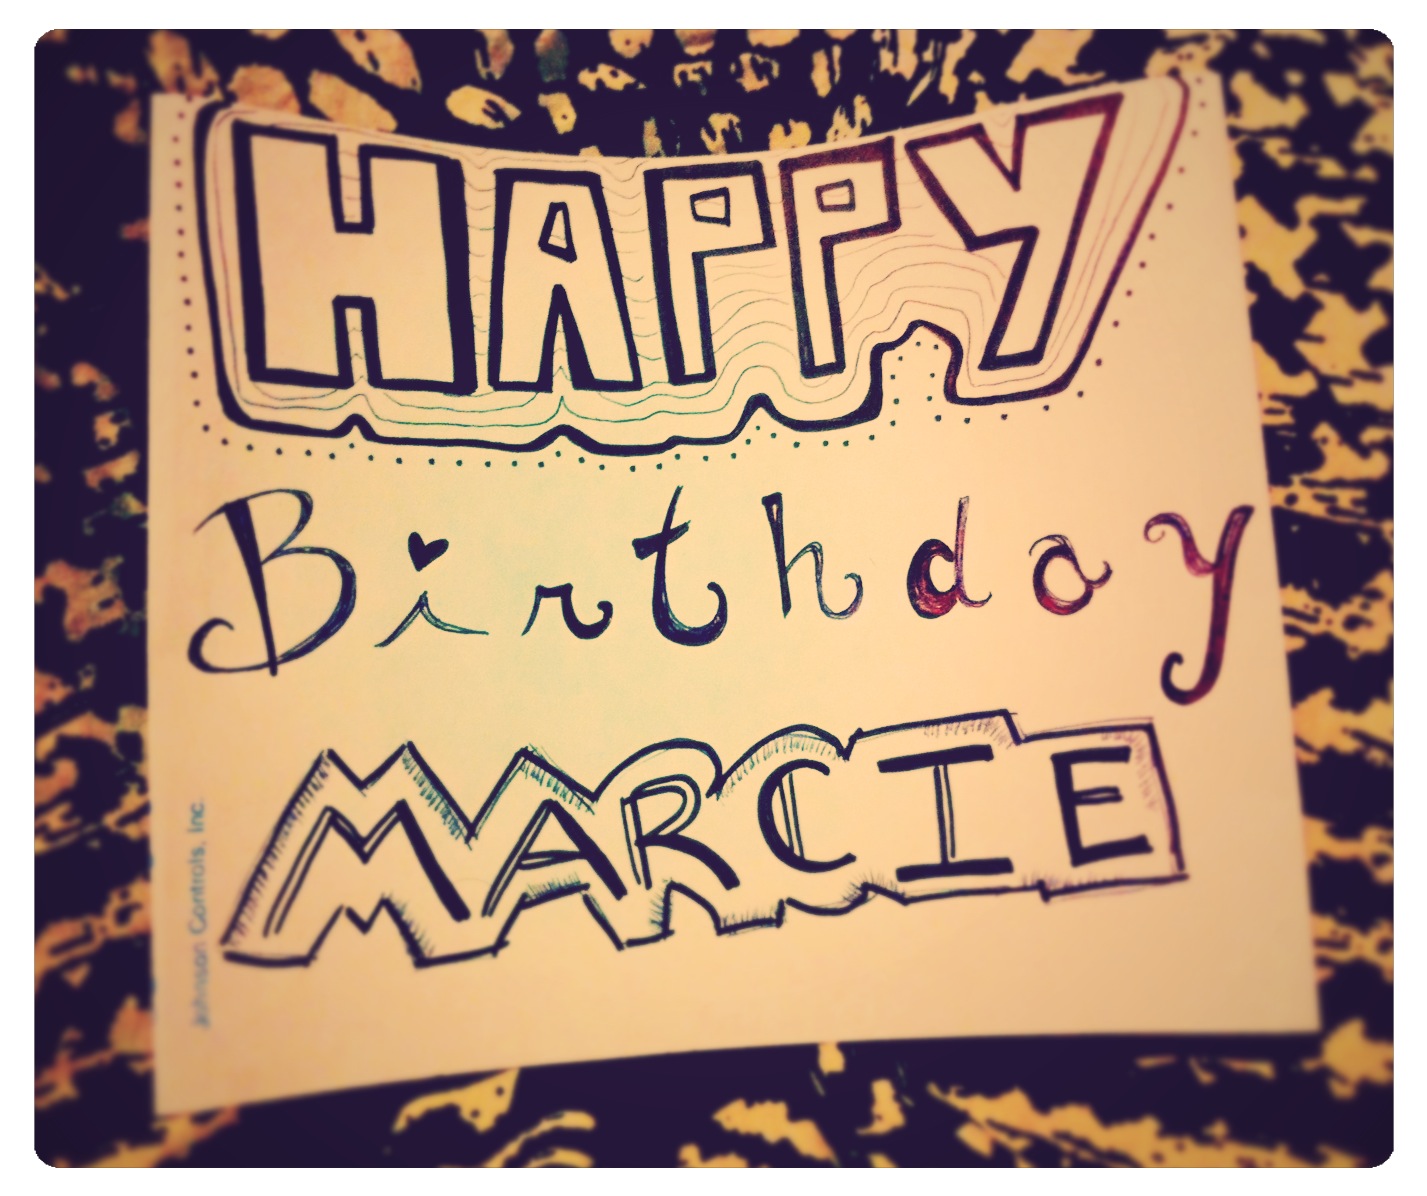 HAPPY
Birthday
MARCIE
Johnson Controls, Inc.